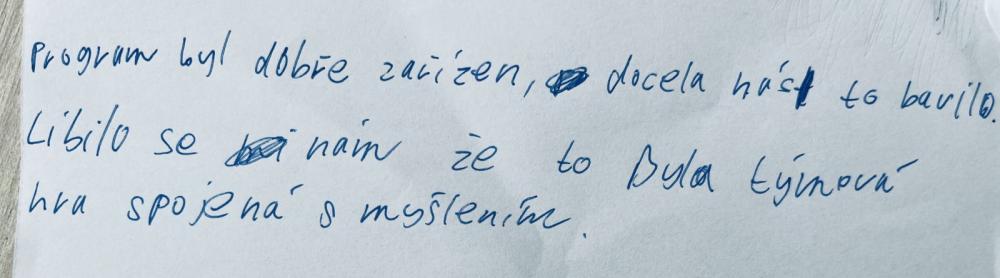 Program byl dobře zařízen, docela nás to bavilo.
Líbilo se nám že to Byla týmová
hra spojená s myšlením.